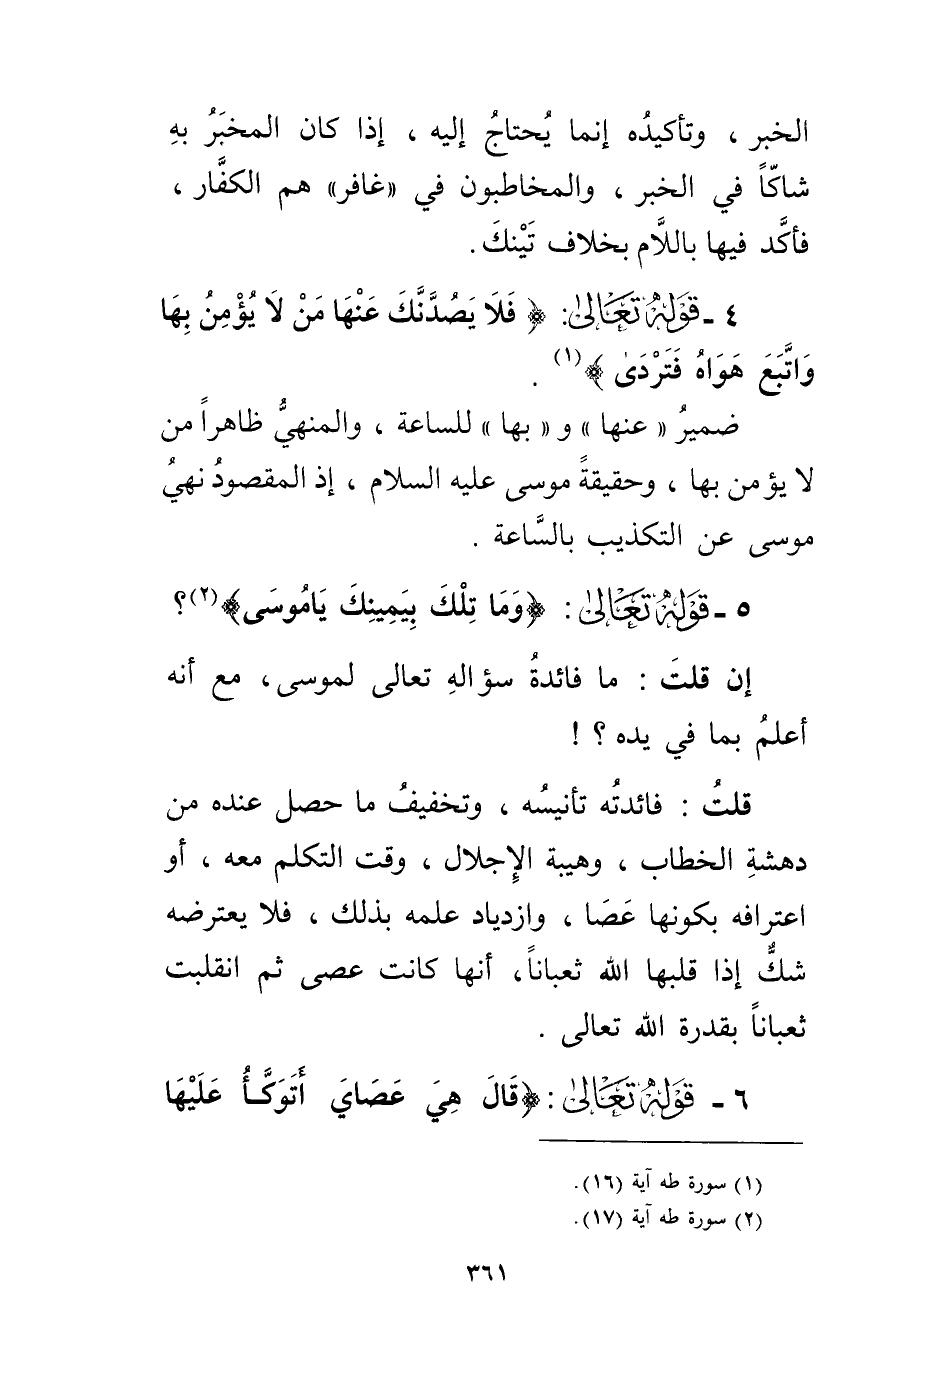 الخبر ، وتأكيدُه إنما يُحتاجُ إليه ، إذا كان المخبَرُ بهِ
شاكّاً في الخبر ، والمخاطبون في «غافر» هم الكفَّار ،
فأكَّد فيها باللَّام بخلاف تَيْنكَ .
٤ ـ قَوْلُهُ تَعَالَىٰ: ﴿ فَلَا يَصُدَّنَّكَ عَنْهَا مَنْ لَا يُؤْمِنُ بِهَا
وَاتَّبَعَ هَوَاهُ فَتَرْدَىٰ ﴾(١) .
ضميرُ « عنها » و « بها » للساعة ، والمنهيُّ ظاهراً من
لا يؤمن بها ، وحقيقةً موسى عليه السلام ، إذ المقصودُ نهيُ
موسى عن التكذيب بالسَّاعة .
٥ ـ قَوْلُهُ تَعَالَىٰ : ﴿وَمَا تِلْكَ بِيَمِينِكَ يَامُوسَى﴾(٢)؟
إن قلتَ : ما فائدةُ سؤالهِ تعالى لموسى، مع أنه
أعلمُ بما في يده ؟ !
قلتُ : فائدتُه تأنيسُه ، وتخفيفُ ما حصل عنده من
دهشةِ الخطاب ، وهيبة الإِجلال ، وقت التكلم معه ، أو
اعترافه بكونها عَصَا ، وازدياد علمه بذلك ، فلا يعترضه
شكٌّ إذا قلبها الله ثعباناً، أنها كانت عصى ثم انقلبت
ثعباناً بقدرة الله تعالى .
٦ ـ قَوْلُهُ تَعَالَىٰ :﴿قَالَ هِيَ عَصَايَ أَتَوَكَّأُ عَلَيْهَا
(١) سورة طه آية (١٦).
(٢) سورة طه آية (١٧).
٣٦١